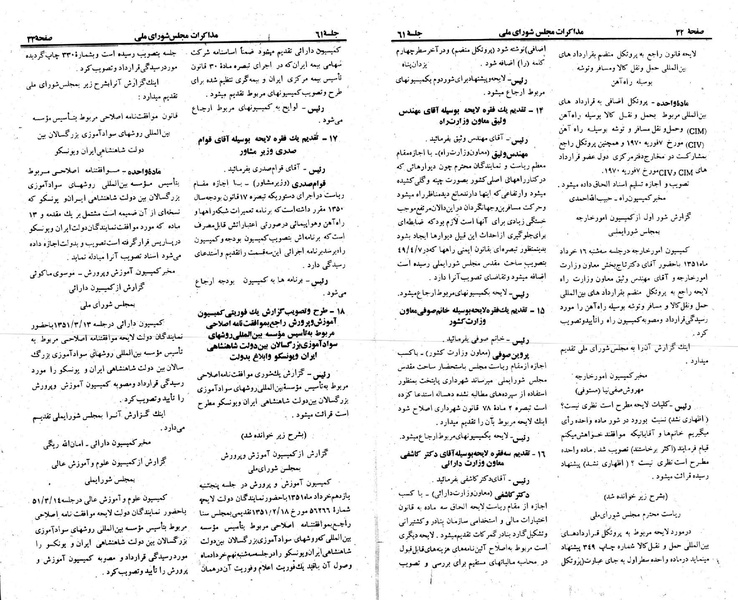 صفحه ۳۲
مذاکرات مجلس شورای ملی
جلسه ۶۱
لایحه قانون راجع به پروتکل منضم بقراردادهای
بین‌المللی حمل و نقل کالا و مسافر و توشه بوسیله
راه‌آهن
ماده واحده - پروتکل اضافی به قرارداد های
بین‌المللی مربوط بحمل و نقل کالا بوسیله راه‌آهن
(CIM) وحمل‌ونقل مسافر و توشه بوسیله راه‌آهن
(CIV) مورخ ۷فوریه ۱۹۷۰ و همچنین پروتکل راجع
بمشارکت در مخارج دفتر مرکزی دول عضو قرارداد
های CIM و CIV مورخ ۷فوریه ۱۹۷۰
تصویب و اجازه تسلیم اسناد الحاق داده میشود.
مخبرکمیسیون راه - حبیب‌اله احمدی
گزارش شور اول از کمیسیون امورخارجه
بمجلس شورایملی
کمیسیون امورخارجه در جلسه سه‌شنبه ۱۶ خرداد
ماه ۱۳۵۱ باحضور آقای دکتر تاج‌بخش معاون وزارت
امورخارجه و آقای مهندس وثیق معاون وزارت راه
لایحه راجع به پروتکل منضم بقراردادهای بین‌المللی
حمل ونقل کالا و مسافر وتوشه بوسیله راه‌آهن را مورد
رسیدگی قرارداد و مصوبه کمیسیون راه را تأیید و تصویب
کرد.
اینک گزارش آن را به مجلس شورای ملی تقدیم
میدارد.
مخبر کمیسیون امورخارجه
مهروش صفی‌نیا (مستوفی)
رئیس- کلیات لایحه مطرح است نظری نیست؟
(اظهاری نشد) نسبت بورود در شور ماده واحده رأی
میگیریم خانمها و آقایانیکه موافقند خواهش میکنم
قیام فرمایند (اکثر برخاستند) تصویب شد. ماده واحده
مطرح است نظری نیست ؟ (اظهاری نشد) پیشنهاد
رسیده قرائت میشود.
(بشرح زیر خوانده شد)
ریاست محترم مجلس شورای‌ملی
درمورد لایحه مربوط به پروتکل قراردادهای
بین‌المللی حمل و نقل کالا شماره چاپ ۳۴۹ پیشنهاد
مینماید درماده واحده سطر اول به جای عبارت (پروتکل
اضافی)نوشته شود (پروتکل منضم) ودرآخر سطرچهارم
کلمه (را) اضافه شود. یزدان‌پناه
رئیس- لایحه وپیشنهاد برای شوردوم بکمیسیونهای
مربوط ارجاع میشود.
۱۴ - تقدیم یك فقره لایحه بوسیله آقای مهندس
وثیق معاون وزارت‌راه
رئیس- آقای مهندس وثیق بفرمائید.
مهندس وثیق (معاون‌وزارت‌راه)- با اجازه مقام
معظم ریاست و نمایندگان محترم چون دیوارهائی که
در کنار راههای اصلی کشور بصورت چینه وگلی کشیده
میشود وارتفاعی که اینها دارند مانع دید مناظر راه میشود
وحرکت مسافرین وجهانگردان در این دالان مرتفع موجب
خستگی زیادی برای آنها است لازم بود که ضابطه‌ای
برای جلوگیری از احداث این قبیل دیوارها ایجاد بشود
بدینمنظور تبصره‌ای بقانون ایمنی راهها که در ۴۹/۴/۷
بتصویب ساحت مقدس مجلس شورایملی رسیده است
اضافه میشود وتقاضای تصویب آنرا دارم.
رئیس- لایحه بکمیسیونهای مربوط ارجاع میشود.
۱۵ - تقدیم یك‌فقره‌لایحه‌بوسیله خانم‌صوفی معاون
وزارت کشور
رئیس- خانم صوفی بفرمائید.
پروین صوفی (معاون وزارت کشور)- باکسب
اجازه از مقام ریاست مجلس باستحضار ساحت مقدس
مجلس شورایملی میرساند شهرداری پایتخت بمنظور
استفاده از سپرده‌های مطالبه نشده دهساله استدعا کرده
است تبصره ۲ ماده ۷۸ قانون شهرداری اصلاح شود
اینك لایحه مربوط بآن را تقدیم میکنم.
رئیس- لایحه بکمیسیونهای مربوط ارجاع میشود.
۱۶ - تقدیم سه‌فقره لایحه بوسیله‌آقای دکتر کاشفی
معاون وزارت دارائی
رئیس- آقای دکتر کاشفی بفرمائید.
دکتر کاشفی (معاون وزارت دارائی)- با کسب
اجازه از مقام ریاست لایحه الحاق سه ماده به قانون
اختیارات مالی و استخدامی سازمان بنادر و کشتیرانی
وتشکیل گارد بنادر گمرکات تقدیم میشود. لایحه دیگری
است مربوط به اصلاح آئین‌نامه‌های هزینه‌های قابل‌قبول
در محاسبه مالیاتهای مستقیم برای بررسی و تصویب
جلسه ۶۱
مذاکرات مجلس شورای ملی
صفحه ۳۳
کمیسیون دارائی تقدیم میشود ضمناً اساسنامه شرکت
سهامی بیمه ایران که در اجرای تبصره ماده ۳۰ قانون
تأسیس بیمه مرکزی ایران و بیمه‌گری تنظیم شده برای
طرح وتصویب کمیسیونهای مربوط تقدیم میشود.
رئیس- لوایح به کمیسیونهای مربوط ارجاع
میشود.
۱۷ - تقدیم یك فقره لایحه بوسیله آقای قوام
صدری وزیر مشاور
رئیس- آقای قوام‌صدری بفرمائید.
قوام‌صدری (وزیرمشاور) - با اجازه مقام
ریاست در اجرای دستوریکه تبصره ۱۷ قانون بودجه سال
۱۳۵۰ مقرر داشته است که برنامه تعمیرات شبکه راهها و
راه‌آهن و هواپیمائی در صورتی اعتباراتش قابل‌مصرف
است که برنامه‌اش بتصویب کمیسیون بودجه وکمیسیون
راه برسد برنامه اجرائی این سه قسمت را تقدیم و استدعای
رسیدگی دارد.
رئیس- برنامه ها به کمیسیون بودجه ارجاع
میشود.
۱۸ - طرح و تصویب گزارش یك فوریتی کمیسیون
آموزش و پرورش راجع بموافقت‌نامه اصلاحی
مربوط به تأسیس مؤسسه بین‌المللی روشهای
سوادآموزی بزرگسالان بین‌دولت شاهنشاهی
ایران ویونسکو وابلاغ بدولت
رئیس- گزارش یک شوری موافقت‌نامه اصلاحی
مربوط به تأسیس مؤسسه بین‌المللی روشهای سوادآموزی
بزرگسالان بین دولت شاهنشاهی ایران ویونسکو مطرح
است قرائت میشود.
(بشرح زیر خوانده شد)
گزارش از کمیسیون آموزش وپرورش
بمجلس شورای‌ملی
کمیسیون آموزش و پرورش در جلسه پنجشنبه
یازدهم خرداد ماه ۱۳۵۱ باحضور نمایندگان دولت لایحه
شماره ۵۶۲۶۶ مورخ ۱۳۵۱/۲/۱۸ تقدیمی مجلس سنا
راجع بموافقتنامه اصلاحی مربوط بتأسیس مؤسسه
بین‌المللی که روشهای سوادآموزی بزرگسالان بین دولت
شاهنشاهی ایران ویونسکو را در جلسه سه‌شنبه نهم خرداد ماه
وصول آن با قید یك‌فوریت اعلام وفوریت آن در همان
جلسه بتصویب رسیده است و بشماره ۳۳۰ چاپ گردیده
مورد رسیدگی قرارداد وتصویب کرد.
اینك گزارش آنرا بشرح زیر بمجلس شورای‌ملی
تقدیم میدارد:
قانون موافقت‌نامه اصلاحی مربوط بتأسیس مؤسسه
بین‌المللی روشهای سوادآموزی بزرگسالان بین
دولت شاهنشاهی ایران ویونسکو
ماده واحده - موافقتنامه اصلاحی مربوط
بتأسیس مؤسسه بین‌المللی روشهای سوادآموزی
بزرگسالان بین دولت شاهنشاهی ایران و یونسکو که
نسخه‌ای از آن ضمیمه است مشتمل بر یك مقدمه و ۱۳
ماده که مورد موافقت نمایندگان دولت ایران ویونسکو
در پاریس قرار گرفته است تصویب و بدولت اجازه داده
میشود اسناد تصویب آنرا مبادله نماید.
مخبر کمیسیون آموزش و پرورش - موسوی ماکوئی
گزارش از کمیسیون دارائی
بمجلس شورای ملی
کمیسیون دارائی در جلسه ۱۳۵۱/۳/۱۳ باحضور
نمایندگان دولت لایحه موافقت نامه اصلاحی
مربوط به تأسیس مؤسسه بین‌المللی روشهای سوادآموزی بزرگسالان بین دولت
شاهنشاهی ایران و یونسکو را مورد
رسیدگی قرارداد و مصوبه کمیسیون آموزش وپرورش
را تأیید وتصویب کرد.
اینك گزارش آنرا بمجلس شورایملی تقدیم
می‌دارد.
مخبر کمیسیون دارائی - امان‌الله ریگی
گزارش از کمیسیون علوم و آموزش عالی
بمجلس شورایملی
کمیسیون علوم و آموزش عالی در جلسه ۵۱/۳/۱۴
باحضور نمایندگان دولت لایحه موافقت نامه اصلاحی
مربوط به تأسیس مؤسسه بین‌المللی روشهای سوادآموزی
بزرگسالان بین دولت شاهنشاهی ایران و یونسکو را
مورد رسیدگی قرارداد و مصوبه کمیسیون آموزش و
پرورش را تأیید وتصویب کرد.